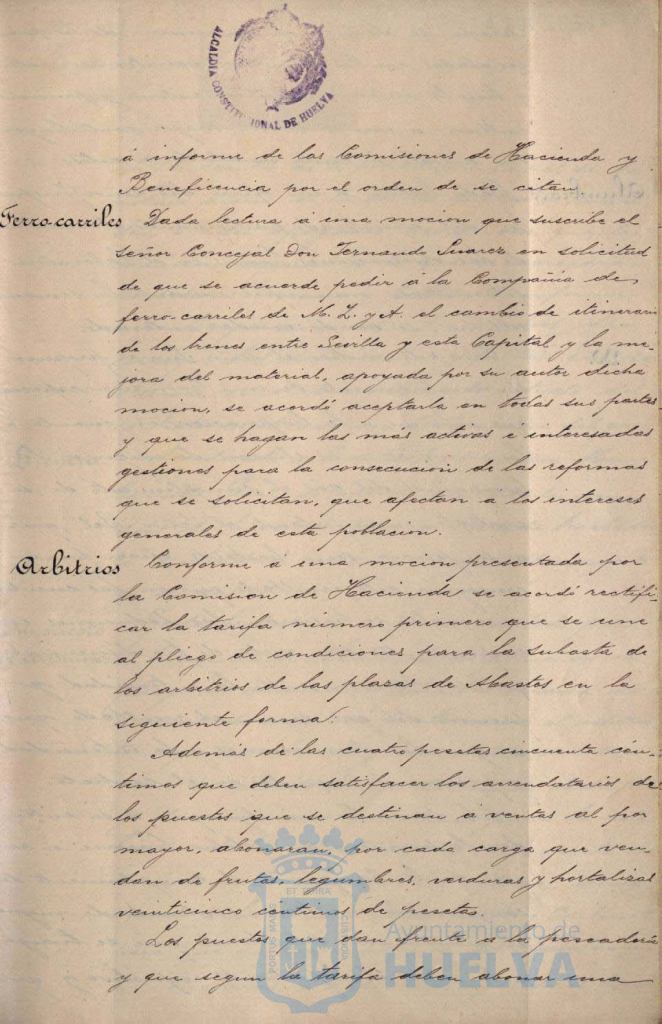 ALCALDIA CONSTITUCIONAL DE HUELVA
á informe de las Comisiones de Hacienda y
Beneficencia por el orden de se citan.
Ferro-carriles
Dada lectura á una mocion que suscribe el
señor Concejal Don Fernando Suarez en solicitud
de que se acuerde pedir á la Compañia de
ferro-carriles de M. Z. y A. el cambio de itinerario
de los trenes entre Sevilla y esta Capital y la me-
jora del material, apoyada por su autor dicha
mocion, se acordó aceptarla en todas sus partes
y que se hagan las más activas é interesadas
gestiones para la consecucion de las reformas
que se solicitan, que afectan á los intereses
generales de esta poblacion.
Arbitrios
Conforme á una mocion presentada por
la Comision de Hacienda se acordó rectifi-
car la tarifa número primero que se une
al pliego de condiciones para la subasta de
los arbitrios de las plazas de Abastos en la
siguiente forma:
Además de las cuatro pesetas cincuenta cén-
timos que deben satisfacer los arrendatarios de
los puestos que se destinan á ventas al por
mayor, abonaran, por cada carga que ven-
dan de frutas, legumbres, verduras y hortalizas
veinticinco centimos de pesetas.
Los puestos que dan frente a la pescaderia
y que segun la tarifa deben abonar una
Ayuntamiento de
HUELVA